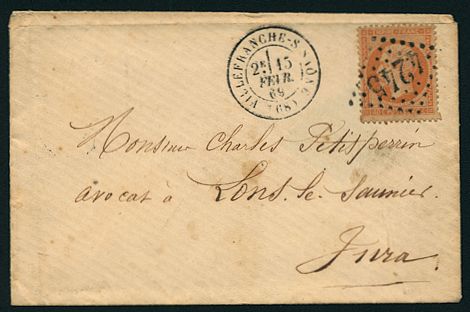 VILLEFRANCHE-S-SAÔNE (68)
2E 15
FEVR.
69
4245
Monsieur Charles Petitperrin
avocat à Lons-le-Saunier.
Jura.